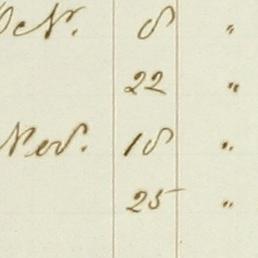 Oct. 8 "
22 "
Nov. 18 "
25 "